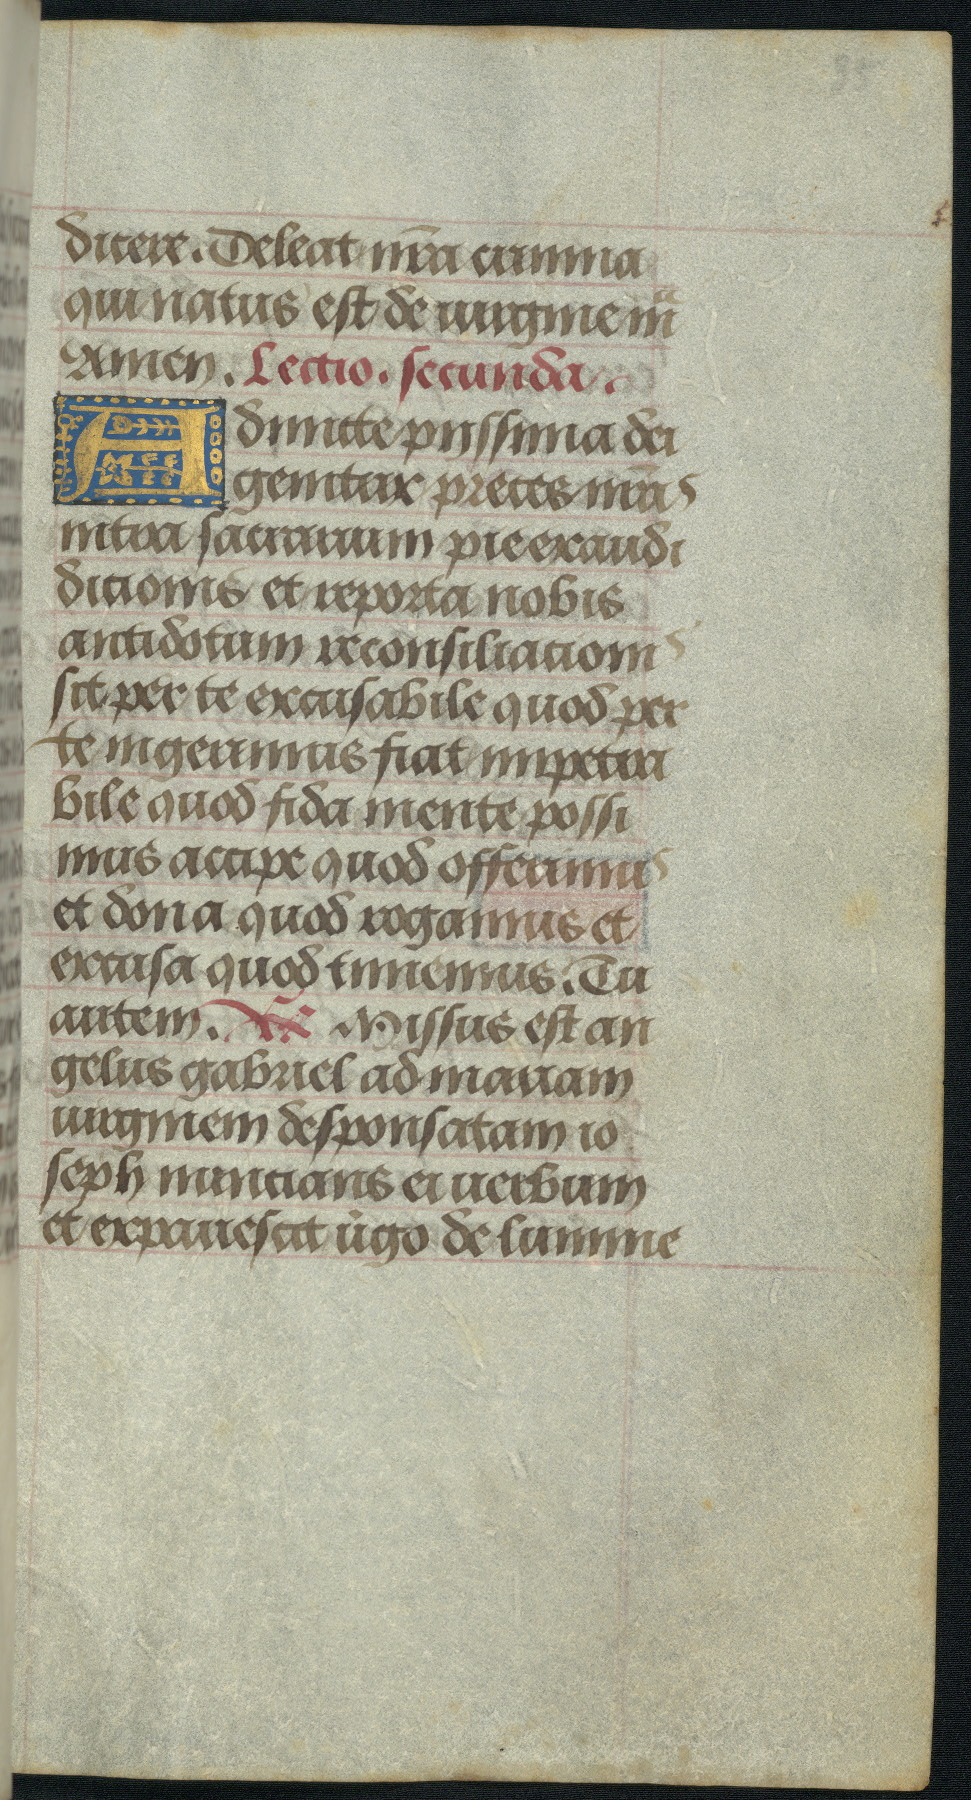 35
dicere. Deleat nr̄a crimina
qui natus est de uirgine m̄
Amen. Lectio. secunda.
Admitte piissima dei
genitrix preces nr̄as
intra sacrarium pie exaudi
dicionis et reporta nobis
antidotum reconsiliacionis
sit per te excusabile quod per
te ingerimus fiat impetra
bile quod fida mente possi
mus accipe quod offerimus
et dona quod rogamus et
excusa quod timemus. Tu
autem. Missus est an
gelus gabriel ad mariam
uirginem desponsatam io
seph nuncians ei uerbum
et expauescit ūgo de lumine